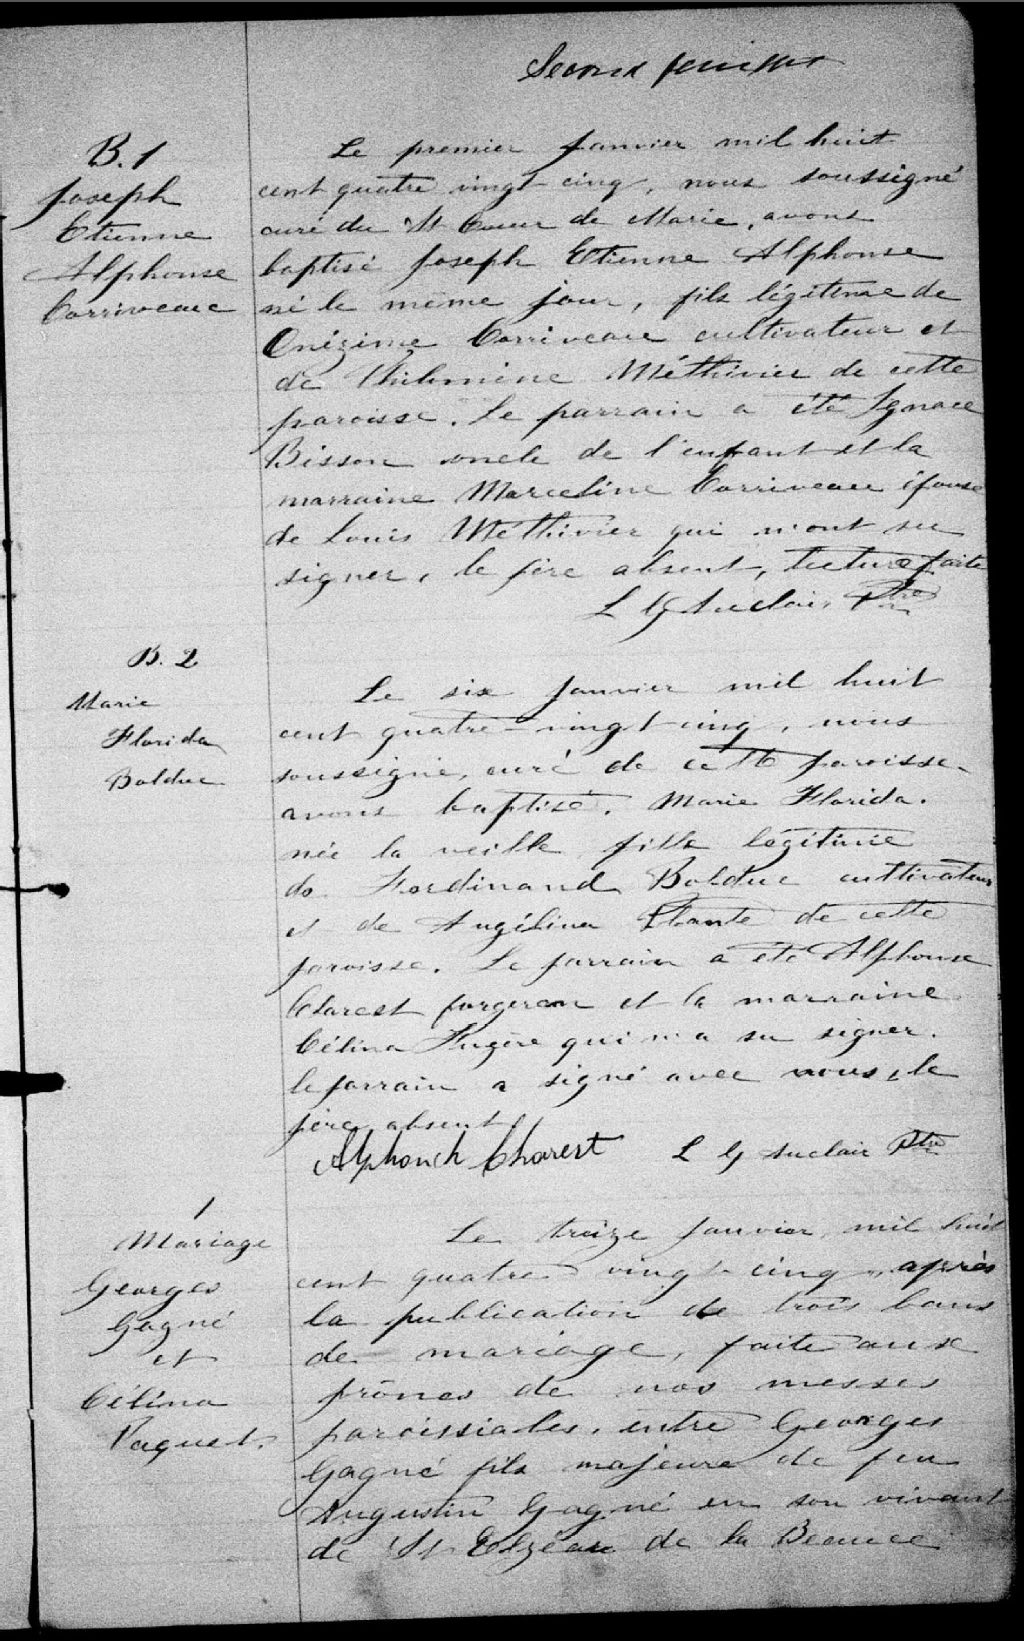 Second feuillet
B.1
Joseph
Etienne
Alphonse
Corriveau
Le premier Janvier mil huit
cent quatre vingt cinq, nous soussigné
curé du St Coeur de Marie, avons
baptisé Joseph Etienne Alphonse
né le même jour, fils légitime de
Onézime Corriveau cultivateur et
de Philomène Méthivier de cette
paroisse. Le parrain a été Ignace
Bisson oncle de l'enfant et la
marraine Marceline Corriveau épouse
de Louis Méthivier qui n'ont su
signer, le père absent, lecture faite
L G Auclair Ptre
B. 2
Marie
Florida
Bolduc
Le six Janvier mil huit
cent quatre-vingt cinq, nous
soussigné, curé de cette paroisse
avons baptisé, Marie Florida.
née la veille fille légitime
de Ferdinand Bolduc cultivateur
et de Angélina Plante de cette
paroisse. Le parrain a été Alphonse
Charest forgeron et la marraine
Célina Fugère qui n'a su signer.
le parrain a signé avec nous, le
père absent.
Alphonse Charest L G Auclair Ptre
1
Mariage
Georges
Gagné
et
Célina
Paquet.
Le treize Janvier mil huit
cent quatre vingt-cinq, après
la publication de trois bans
de mariage, faite aux
prônes de nos messes
paroissiales, entre Georges
Gagné fils majeure de feu
Augustin Gagné en son vivant
de St Elzéar de la Beauce